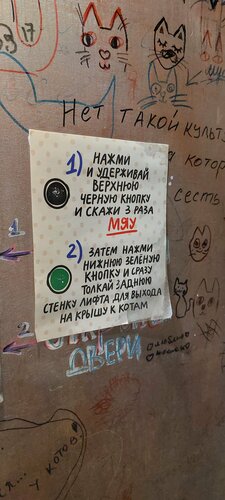 3 17
Нет такой культ
котор
сесть
1) НАЖМИ
И УДЕРЖИВАЙ
ВЕРХНЮЮ
ЧЕРНУЮ КНОПКУ
И СКАЖИ 3 РАЗА
МЯУ
2) ЗАТЕМ НАЖМИ
НИЖНЮЮ ЗЕЛЁНУЮ
КНОПКУ И СРАЗУ
ТОЛКАЙ ЗАДНЮЮ
СТЕНКУ ЛИФТА ДЛЯ ВЫХОДА
НА КРЫШУ К КОТАМ
1
2
ДВЕРИ
У КОТОВ